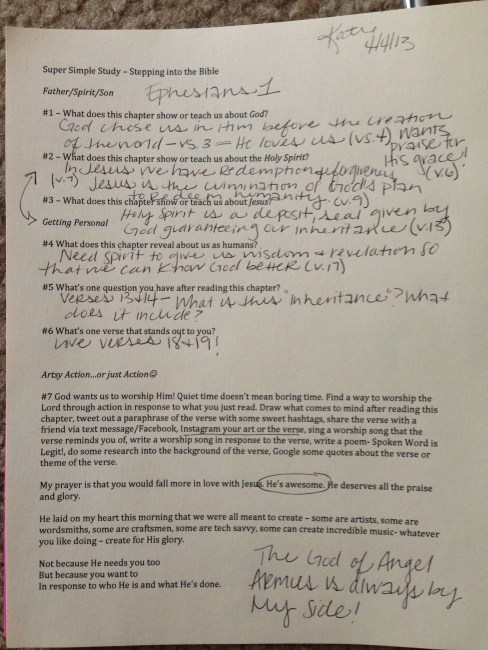 Katy
4/4/13
Super Simple Study – Stepping into the Bible
Father/Spirit/Son
Ephesians 1
#1 – What does this chapter show or teach us about God?
God chose us in Him before the creation
of the world – vs. 3 = He loves us (vs. 4) Wants
praise for
His grace!
(v.6)
#2 – What does this chapter show or teach us about the Holy Spirit?
In Jesus we have Redemption & forgiveness
(v.7) Jesus is the culmination of God's plan
to redeem humanity. (v.9)
#3 – What does this chapter show or teach us about Jesus?
Holy Spirit is a deposit, seal given by
Getting Personal
God guaranteeing our inheritance (v.13)
#4 What does this chapter reveal about us as humans?
Need spirit to give us wisdom & revelation so
that we can know God better (v.17)
#5 What's one question you have after reading this chapter?
Verses 13 & 14 – What is this "inheritance"? What
does it include?
#6 What's one verse that stands out to you?
Love verses 18 & 19!
Artsy Action...or just Action☺
#7 God wants us to worship Him! Quiet time doesn't mean boring time. Find a way to worship the
Lord through action in response to what you just read. Draw what comes to mind after reading this
chapter, tweet out a paraphrase of the verse with some sweet hashtags, share the verse with a
friend via text message/Facebook, Instagram your art or the verse, sing a worship song that the
verse reminds you of, write a worship song in response to the verse, write a poem- Spoken Word is
Legit!, do some research into the background of the verse, Google some quotes about the verse or
theme of the verse.
My prayer is that you would fall more in love with Jesus. He's awesome. He deserves all the praise
and glory.
He laid on my heart this morning that we were all meant to create – some are artists, some are
wordsmiths, some are craftsmen, some are tech savvy, some can create incredible music- whatever
you like doing – create for His glory.
Not because He needs you too
But because you want to
In response to who He is and what He's done.
The God of Angel
Armies is always by
My side!